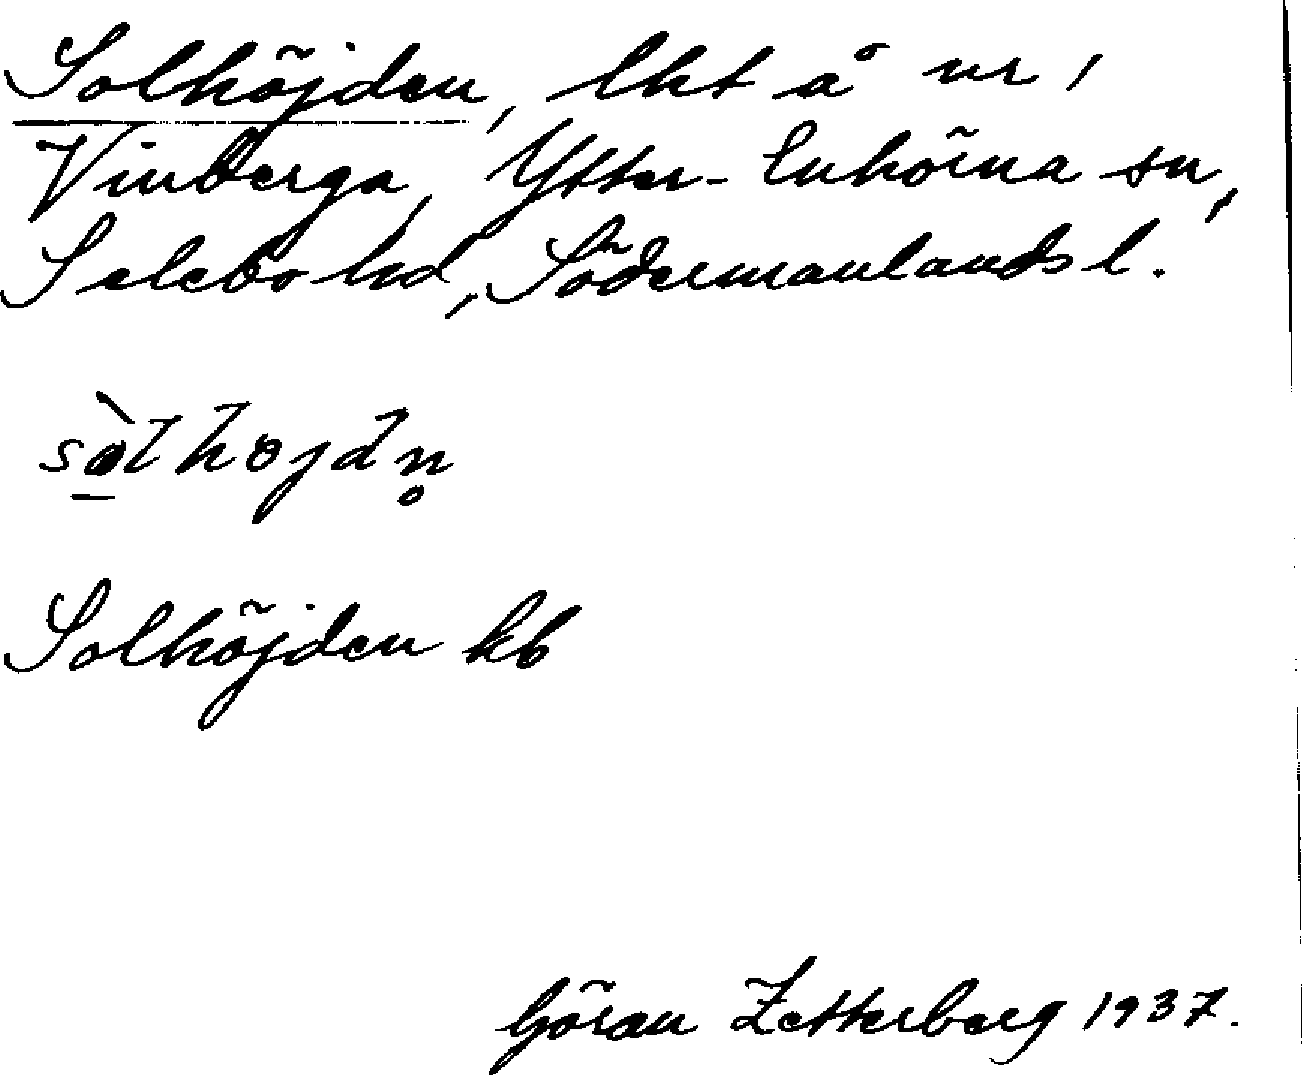 Solhöjden, lht å nr 1
Vinberga, Ytter-Enhörna sn,
Selebo hd, Södermanlands l.
sòlhøjdn̥
Solhöjden kb
Göran Zetterberg 1937.